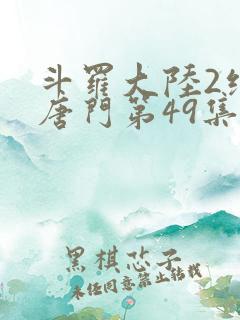 斗羅大陸2
唐門第49集
黑棋芯子
未經同意禁止轉載